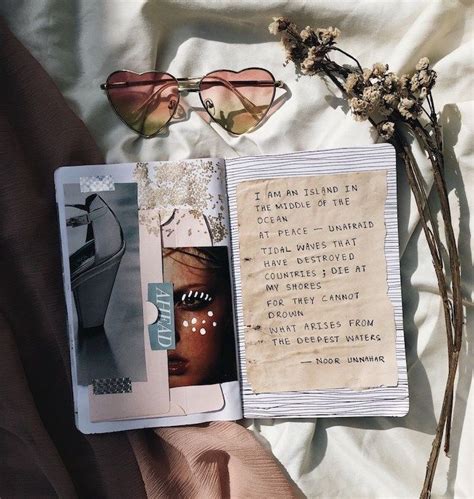 AFRAID
I AM AN ISLAND IN
THE MIDDLE OF THE
OCEAN
AT PEACE — UNAFRAID
TIDAL WAVES THAT
HAVE DESTROYED
COUNTRIES ; DIE AT
MY SHORES
FOR THEY CANNOT
DROWN
WHAT ARISES FROM
THE DEEPEST WATERS
— NOOR UNNAHAR